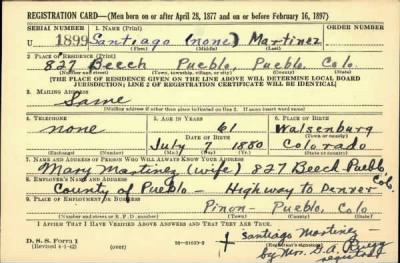 REGISTRATION CARD—(Men born on or after April 28, 1877 and on or before February 16, 1897)
SERIAL NUMBER 1. NAME (Print) ORDER NUMBER
U 1899 Santiago (none) Martinez
(First) (Middle) (Last)
2. PLACE OF RESIDENCE (Print)
827 Beech Pueblo, Pueblo, Colo.
(Number and street) (Town, township, village, or city) (County) (State)
[THE PLACE OF RESIDENCE GIVEN ON THE LINE ABOVE WILL DETERMINE LOCAL BOARD
JURISDICTION; LINE 2 OF REGISTRATION CERTIFICATE WILL BE IDENTICAL]
3. MAILING ADDRESS
Same
[Mailing address if other than place indicated on line 2. If same insert word same]
4. TELEPHONE 5. AGE IN YEARS 6. PLACE OF BIRTH
none 61 Walsenburg
DATE OF BIRTH (Town or county)
July 7 1880 Colorado
(Exchange) (Number) (Mo.) (Day) (Yr.) (State or country)
7. NAME AND ADDRESS OF PERSON WHO WILL ALWAYS KNOW YOUR ADDRESS
Mary Martinez (wife) 827 Beech-Pueblo Colo.
8. EMPLOYER'S NAME AND ADDRESS
County of Pueblo - Highway to Denver
9. PLACE OF EMPLOYMENT OR BUSINESS
Pinon - Pueblo, Colo
(Number and street or R. F. D. number) (Town) (County) (State)
I AFFIRM THAT I HAVE VERIFIED ABOVE ANSWERS AND THAT THEY ARE TRUE.
D. S. S. Form 1 Santiago Martinez -
(Revised 4-1-42) (over) (Registrant's signature)
by Mrs. G.A.
registrar